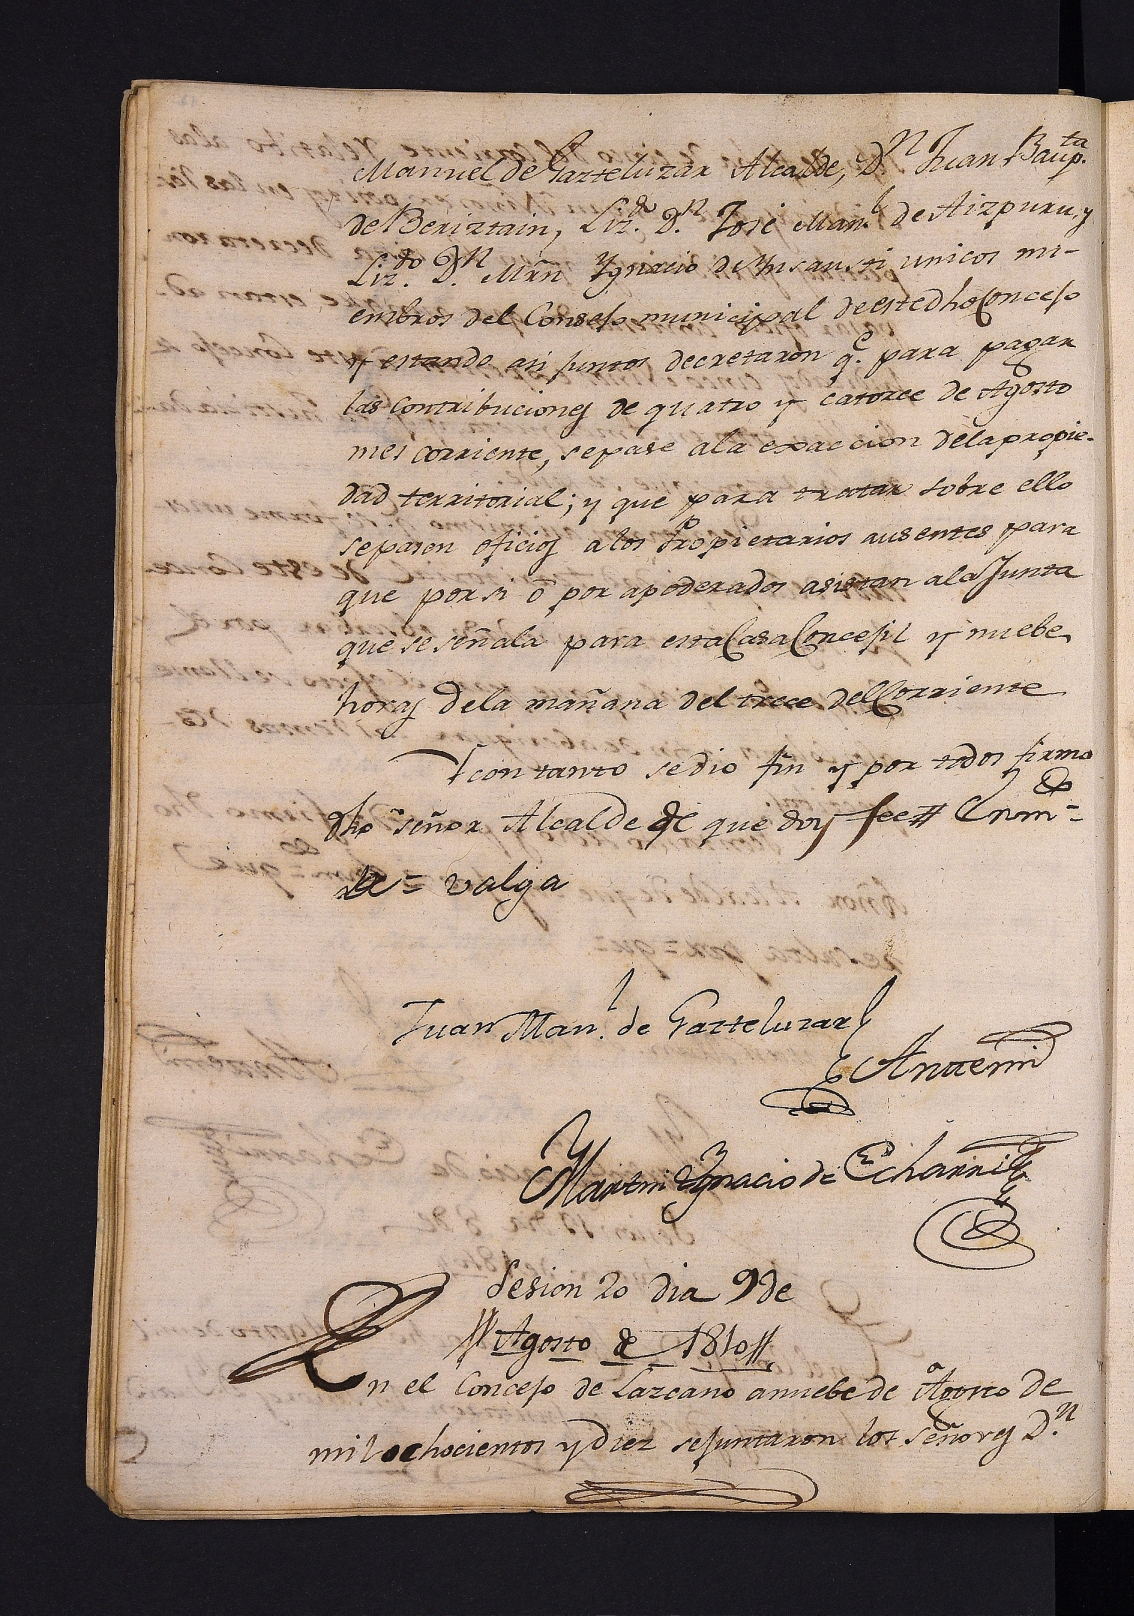 Manuel de Gazteluzar Alcalde, D.n Juan Baup.ta
de Beriztain, Liz.do D.n José Man.l de Aizpuru, y
Liz.do D.n Mrñ Ygnacio de Ynsausti unicos mi-
embros del Consejo municipal de este dho Concejo
y estando asi juntos decretaron q.e para pagar
las contribuciones de quatro y catorce de Agosto
mes corriente, se pase a la exaccion de la propie-
dad territorial; y que para tratar sobre ello
se pasen oficios a los Propietarios ausentes para
que por si ô por apoderados asistan a la Junta
que se señala para esta Casa Concejil y nuebe
horas de la mañana del trece del Corriente
Y con tanto se dio fin y por todos firmo
dho señor Alcalde de que doy fee # Enm.do =
= valga
Juan Man.l de Gazteluzar
Antemi
Martin Ygnacio de Echarri
Sesion 20 dia 9 de
Agosto de 1810
En el Concejo de Lazcano a nuebe de Agosto de
mil ochocientos y diez se juntaron los señores D.n